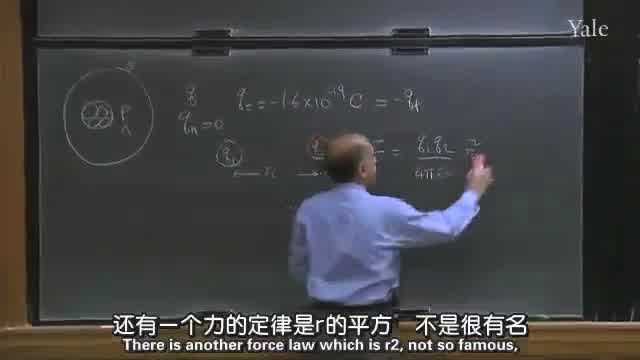 Yale
q qₑ = -1.6 × 10⁻¹⁹ C = -qₚ
P
n
qₙ = 0
q₁ = q₁ q₂
4πε₀
还有一个力的定律是r的平方 不是很有名
There is another force law which is r2, not so famous,